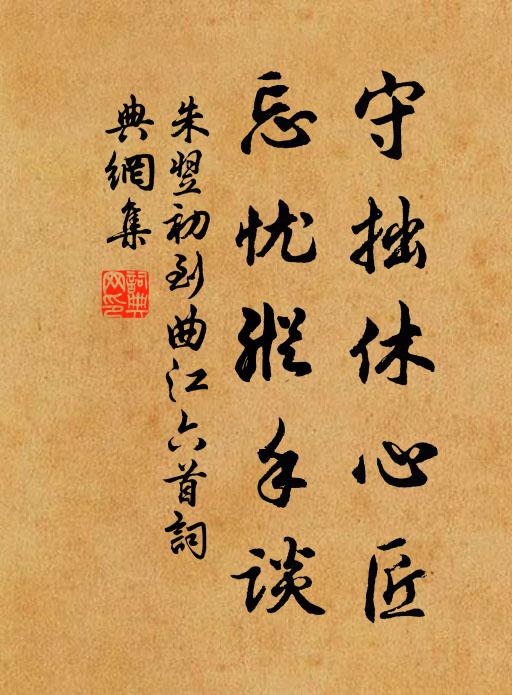 守拙休心匠
忘忧縱手谈
朱翌初到曲江六首詞
典網集
詞典
网印